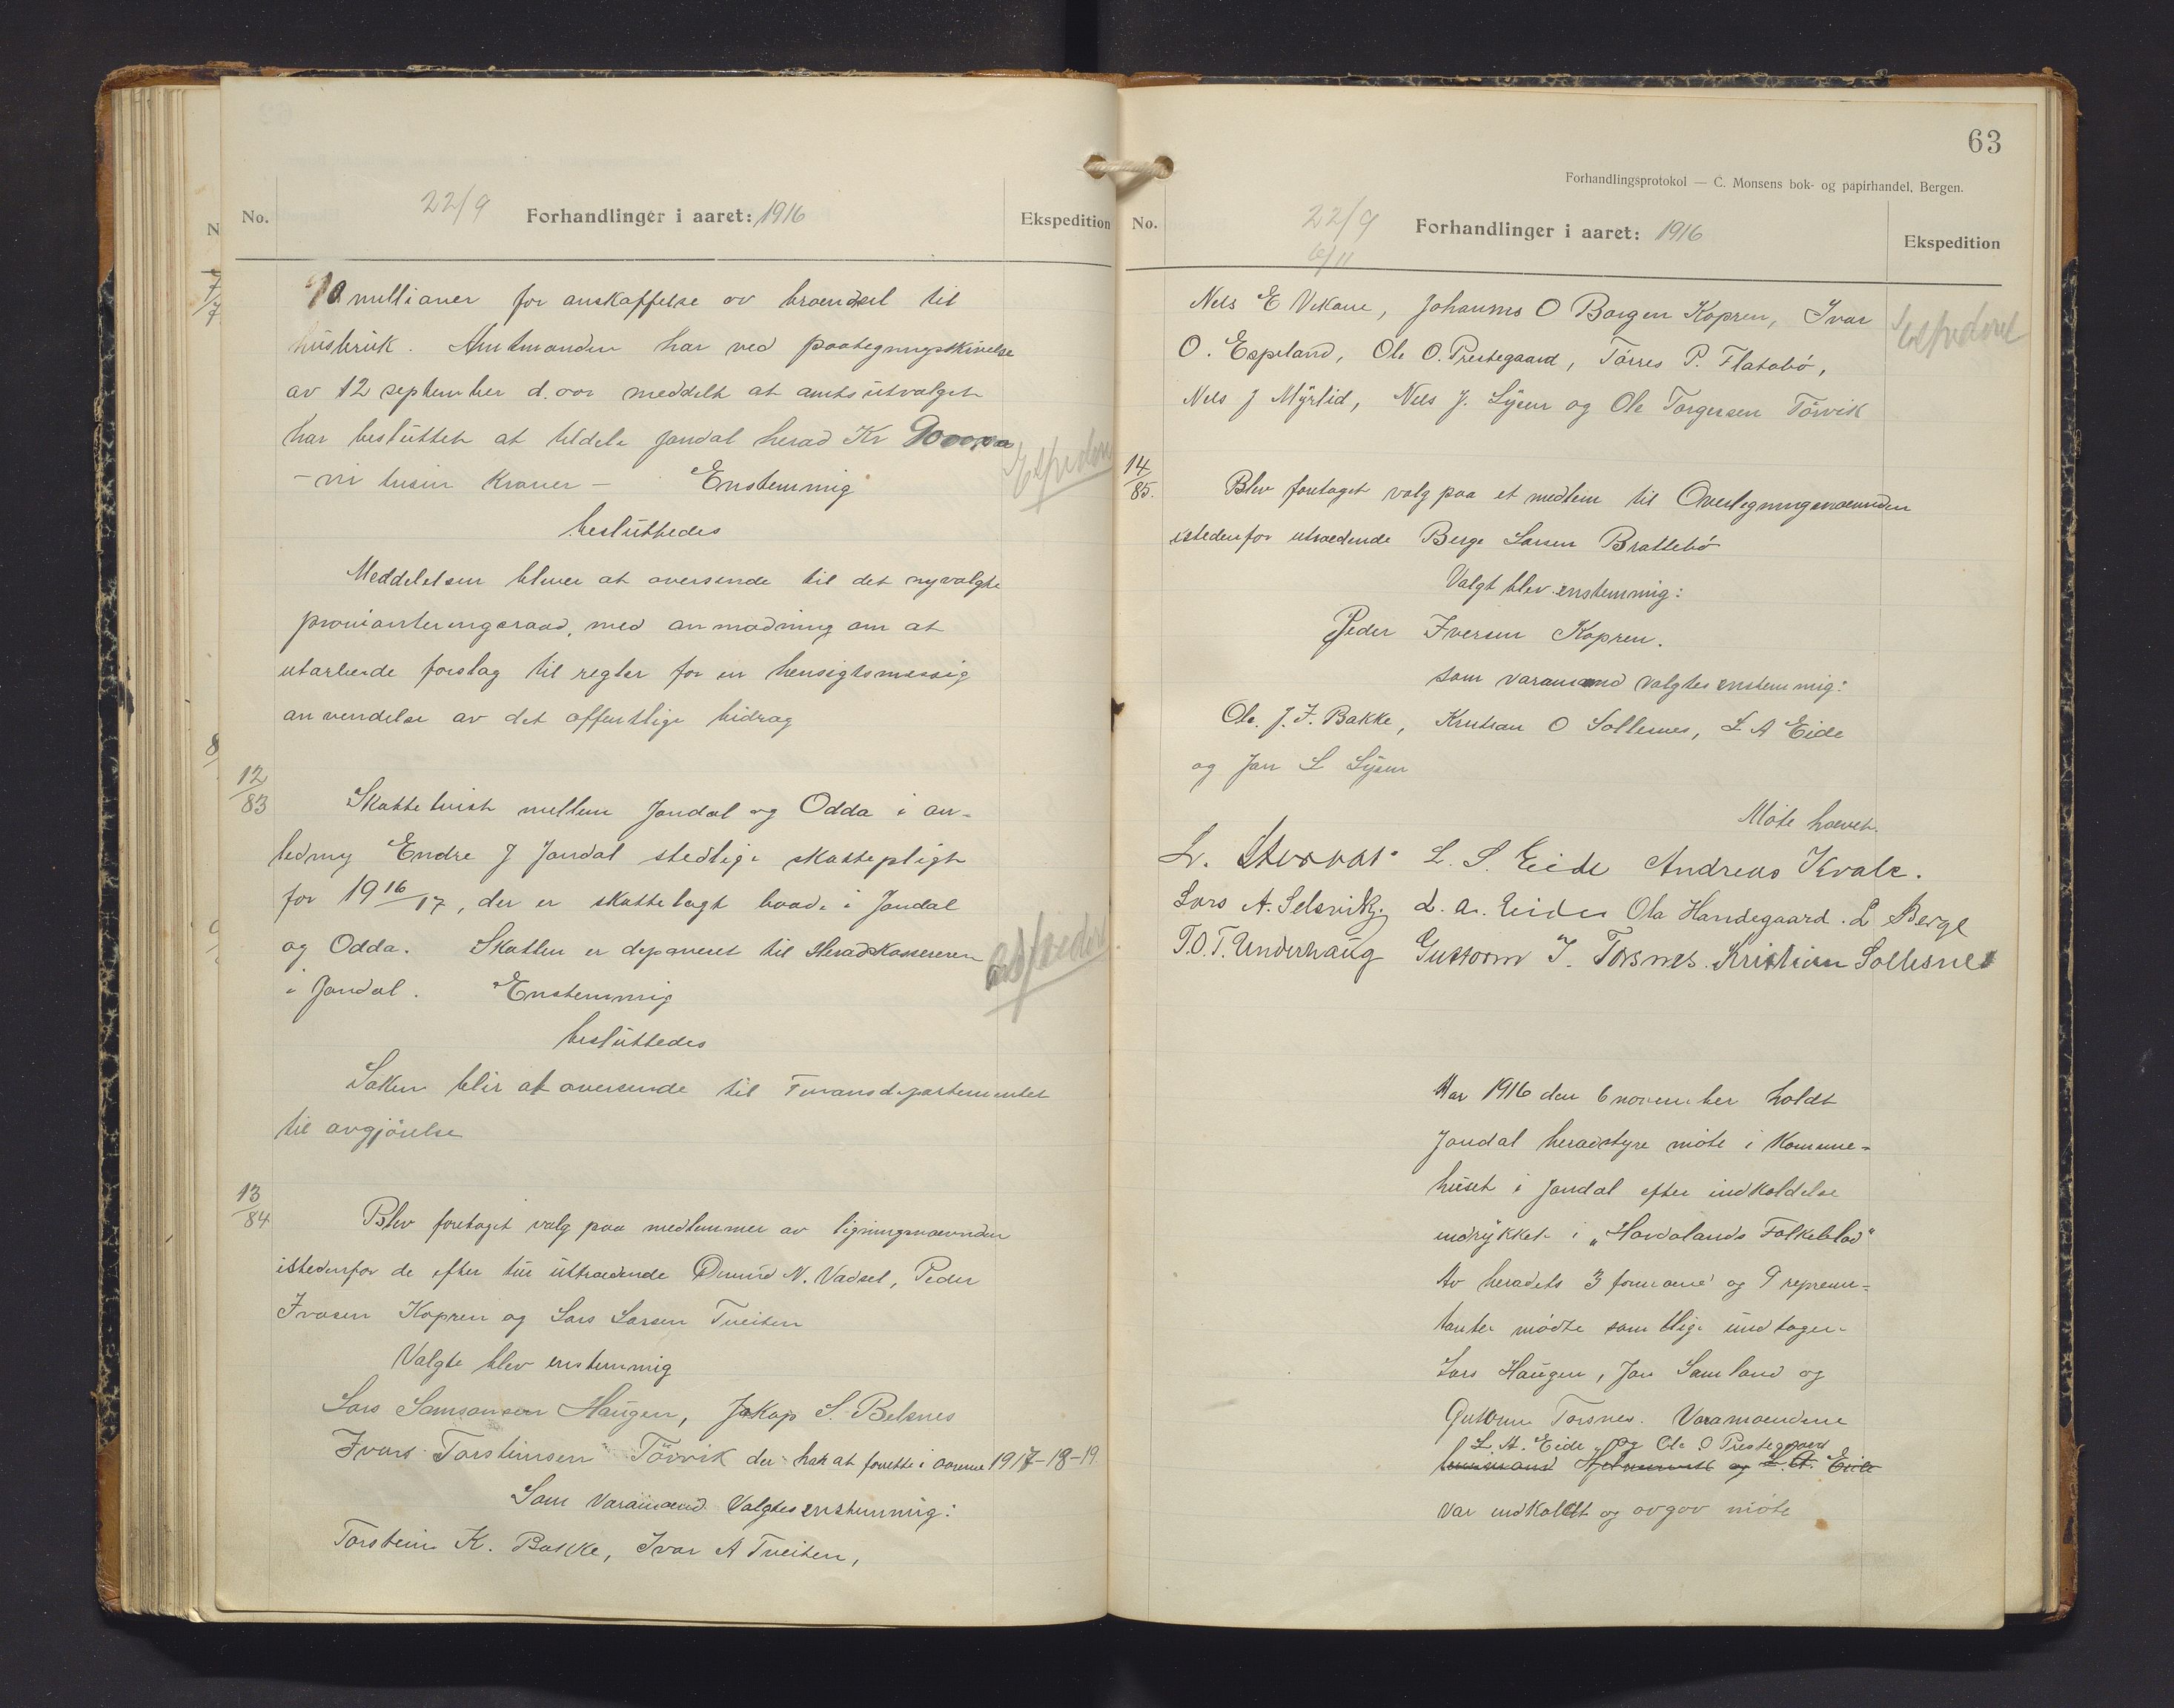 No.
22/9 Forhandlinger i aaret: 1916
Ekspedition
10 millianer for anskaffelse av brændsel til
husbruk. Amtmanden har ved paategningskrivelse
av 12 september d. aar meddelt at amtsutvalget
har besluttet at tildele Jondal herad Kr 9000,00
- ni tusen Kroner - Enstemmig
besluttedes
Meddelelsen bliver at oversende til det nyvalgte
provianteringsraad, med anmodning om at
utarbeide forslag til regler for en hensigtsmæssig
anvendelse av det offentlige bidrag
12/83 Skattetvist mellem Jondal og Odda i an-
ledning Endre J Jondal stedlige skattepligt
for 1916/17, der er skattelagt baade i Jondal
og Odda. Skatten er deponeret til Heradskassereren
i Jondal. Enstemmig
besluttedes
Saken blir at oversende til Finansdepartementet
til avgjörelse
13/84 Blev foretaget valg paa medlemmer av ligningsnævnden
istedenfor de efter tur uttrædende N. Vadset, Peder
Iversen Kopren og Lars Larsen Tveiten
Valgte blev enstemmig
Lars Samsonsen Haugen, Jakop S. Belsnes
Ivars Torsteinsen Törvik der har at forrette i aarene 1917-18-19.
Som Varamænd Valgtes enstemmig:
Torstein K. Bakke, Ivar A Tveiten,
63
Forhandlingsprotokol — C. Monsens bok- og papirhandel, Bergen.
No.
22/9 Forhandlinger i aaret: 1916
6/11
Ekspedition
Nels E Vikane, Johannes O Borgen Kopren, Ivar
O. Espeland, Ole O. Prestegaard, Törres P. Flatabö,
Nels J Myrlid, Nels J. Lysen og Ole Torgersen Törvik
Ekspederet
14/85. Blev foretaget valg paa et medlem til Overligningsnævnden
istedenfor utrædende Berge Larsen Brattebö
Valgt blev enstemmig:
Peder Iversen Kopren.
som varamænd valgtes enstemmig:
Ole. J. I. Bakke, Kristian O Sollesnes, L A Eide
og Jon L Lysen
Möte hævet.
L. L. S. Eide Andreas Kvale.
Lars A. Selsvik. L. A. Eide Ola Handegaard. L Berge
T.O.T. Underhaug Guttorm J. Torsnes. Kristian Sollesnes
Aar 1916 den 6 november holdt
Jondal heradstyre möte i Komune-
huset i Jondal efter indkaldelse
indrykket i „Hordalands Folkeblad"
Av heradets 3 formænd og 9 repræsen-
tanter mödte samtlige undtagen
Lars Haugen, Jon Samland og
Guttorm Torsnes. Varamændene
L. A. Eide og Ole O Prestegaard
og L. A. Eide
var indkaldt og avgav möte